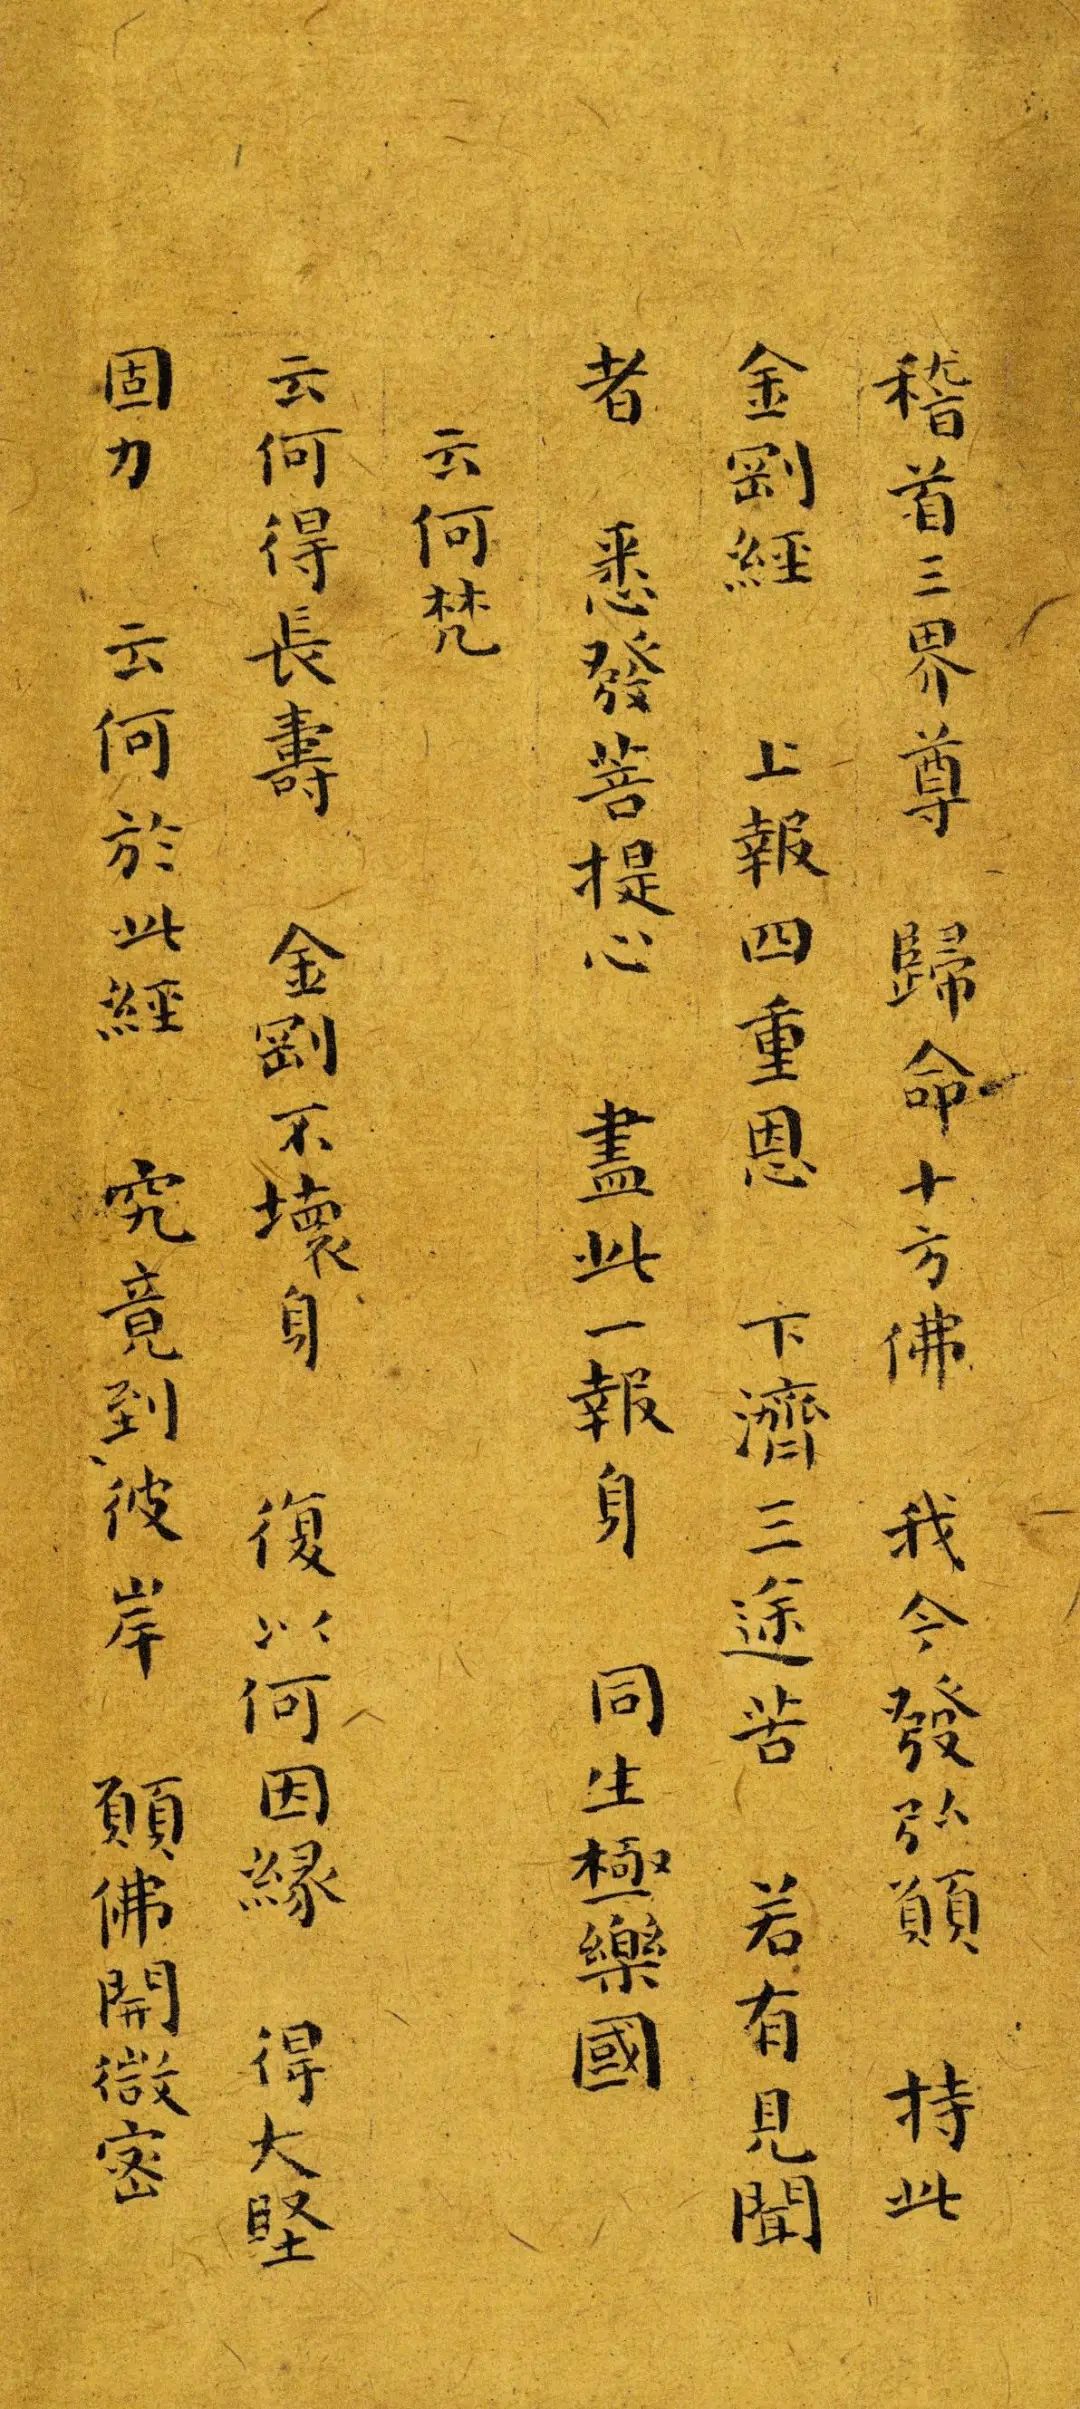 稽首三界尊 歸命十方佛 我今發弘願 持此
金剛經 上報四重恩 下濟三途苦 若有見聞
者 悉發菩提心 盡此一報身 同生極樂國
云何梵
云何得長壽 金剛不壞身 復以何因緣 得大堅
固力 云何於此經 究竟到彼岸 願佛開微密